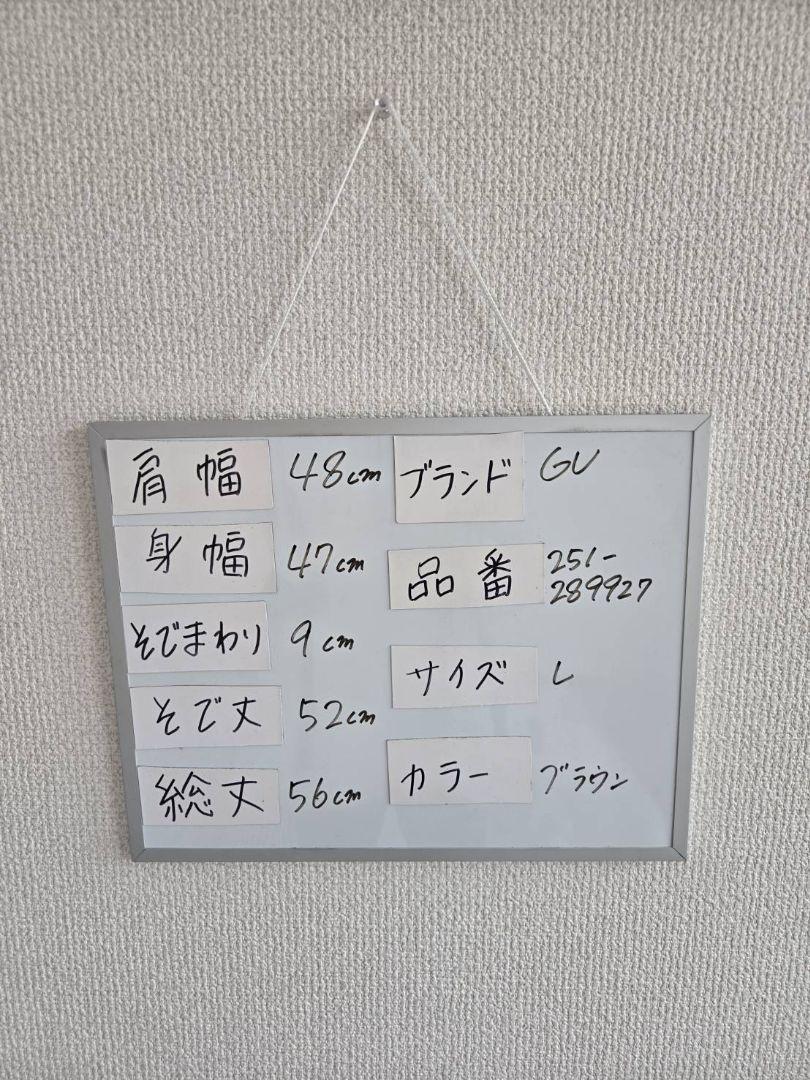 肩幅 48cm
身幅 47cm
そでまわり 9cm
そで丈 52cm
総丈 56cm
ブランド GU
品番 251-
289927
サイズ L
カラー ブラウン